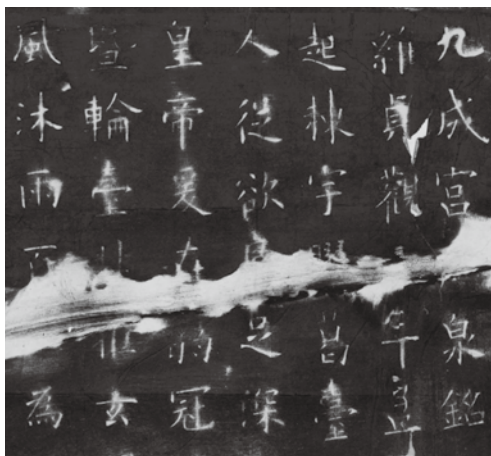 九成宮泉銘
維貞觀年孟
起棟宇葛臺
人從欲足深
皇帝爰在弱冠
暨輪臺北拒玄
風沐雨百為